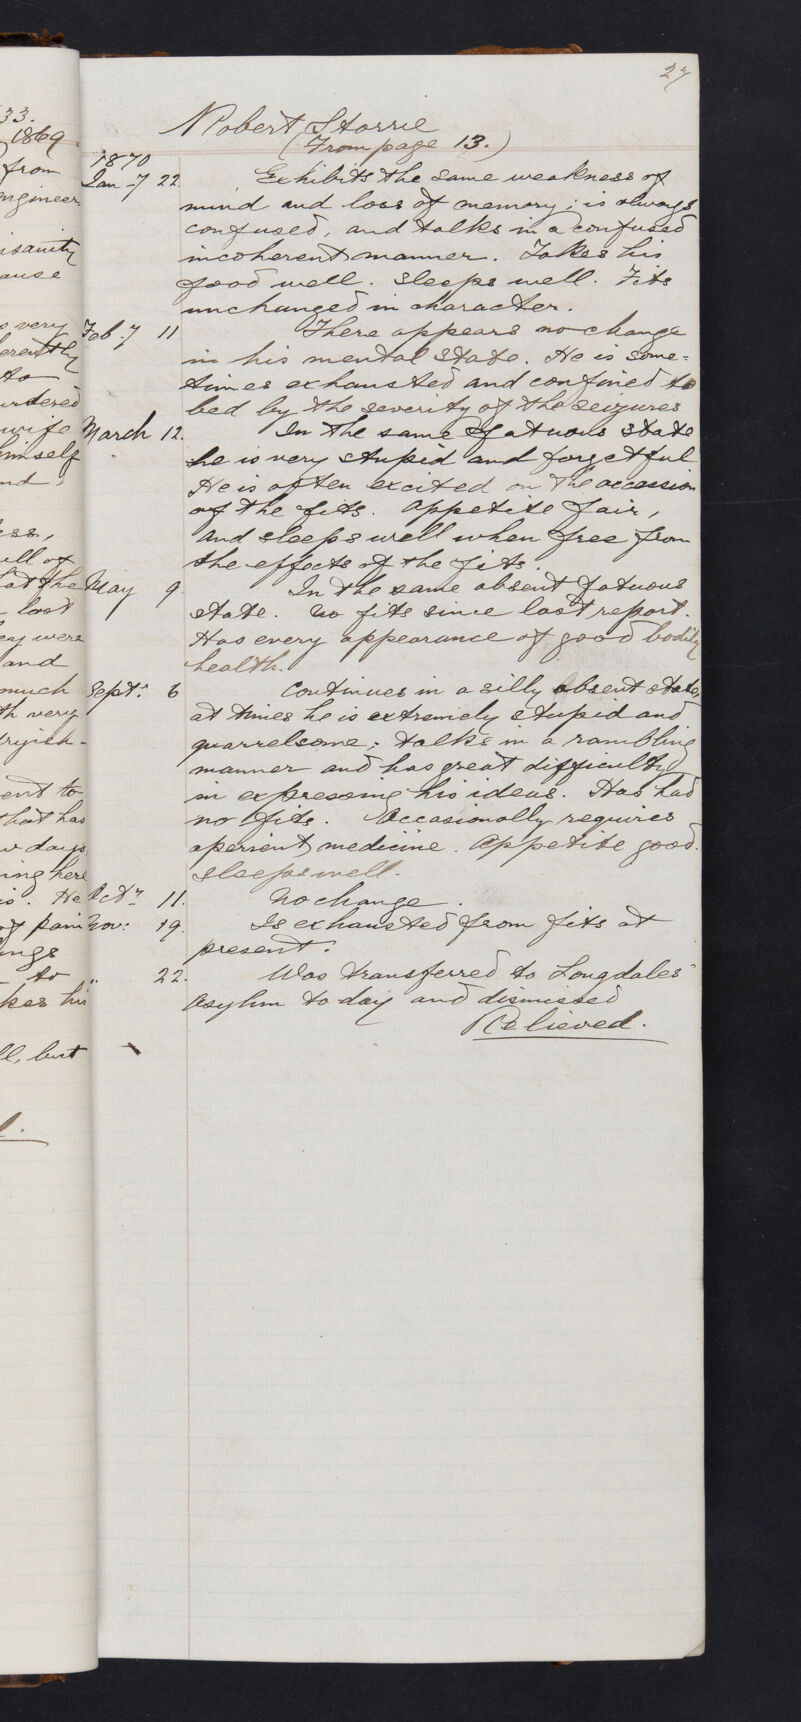 27
Robert Storrie
(From page 13.)
1870
Jany 22. Exhibits the same weakness of
mind and loss of memory; is always
confused, and talks in a confused
incoherent manner. Takes his
food well. Sleeps well. Fits
unchanged in character.
Feby 11 There appears no change
in his mental state. He is some=
times exhausted and confined to
bed by the severity of the seizures
March 12. In the same fatuous state
he is very stupid and forgetful
He is often excited on the accession
of the fits. Appetite fair,
and sleeps well when free from
the effects of the fits.
May 9. In the same absent fatuous
state. No fits since last report.
Has every appearance of good bodily
health.
Septr. 6 Continues in a silly absent state,
at times he is extremely stupid and
quarrelsome; talks in a rambling
manner and has great difficulty
in expressing his ideas. Has had
no fits. Occasionally requires
aperient medicine. Appetite good.
Sleeps well.
Octr. 11. No change.
Nov: 19. Is exhausted from fits at
present.
" 22. Was transferred to Longdales
Asylum to day and dismissed
Relieved.
33.
1869
from
engineer
insanity
cause
very
to
murdered
wife
himself
and
at the
last
they were
and
much
very
to
that has
days
here
. He
pain
to
his
ll, but